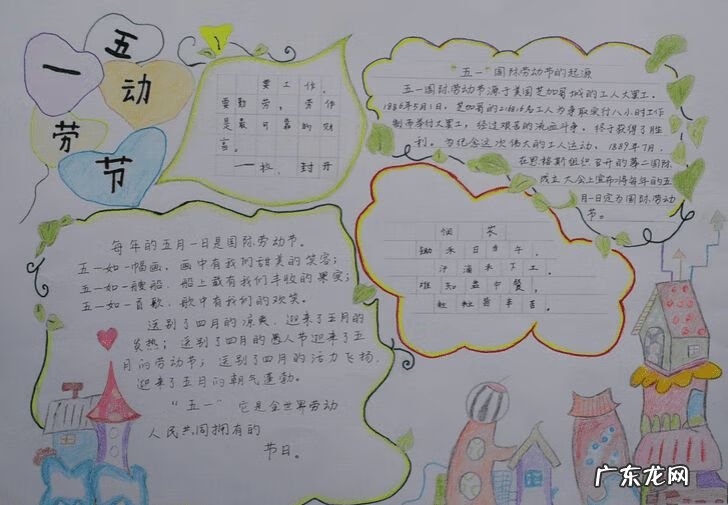 五一劳动节
要工作，
要勤劳，劳作
是最可靠的财
富。
“五一”国际劳动节的起源
五一国际劳动节源于美国芝加哥城的工人大罢工。
1886年5月1日，芝加哥的21.6万名工人为争取实行八小时工作
制而举行大罢工，经过艰苦的流血斗争，终于获得了胜
利。为纪念这次伟大的工人运动，1889年7月，
在恩格斯组织召开的第二国际
成立大会上宣布将每年的五
月一日定为国际劳动
节。
悯 农
锄禾日当午，
汗滴禾下土。
谁知盘中餐，
粒粒皆辛苦。
每年的五月一日是国际劳动节。
五一如一幅画，画中有我们甜美的笑容；
五一如一艘船，船上载有我们丰收的果实；
五一如一首歌，歌中有我们的欢笑。
送别了四月的凉爽，迎来了五月的
炎热；送别了四月的愚人节迎来了五
月的劳动节；送别了四月的活力飞扬，
迎来了五月的朝气蓬勃。
“五一”它是全世界劳动
人民共同拥有的
节日。
广东龙网